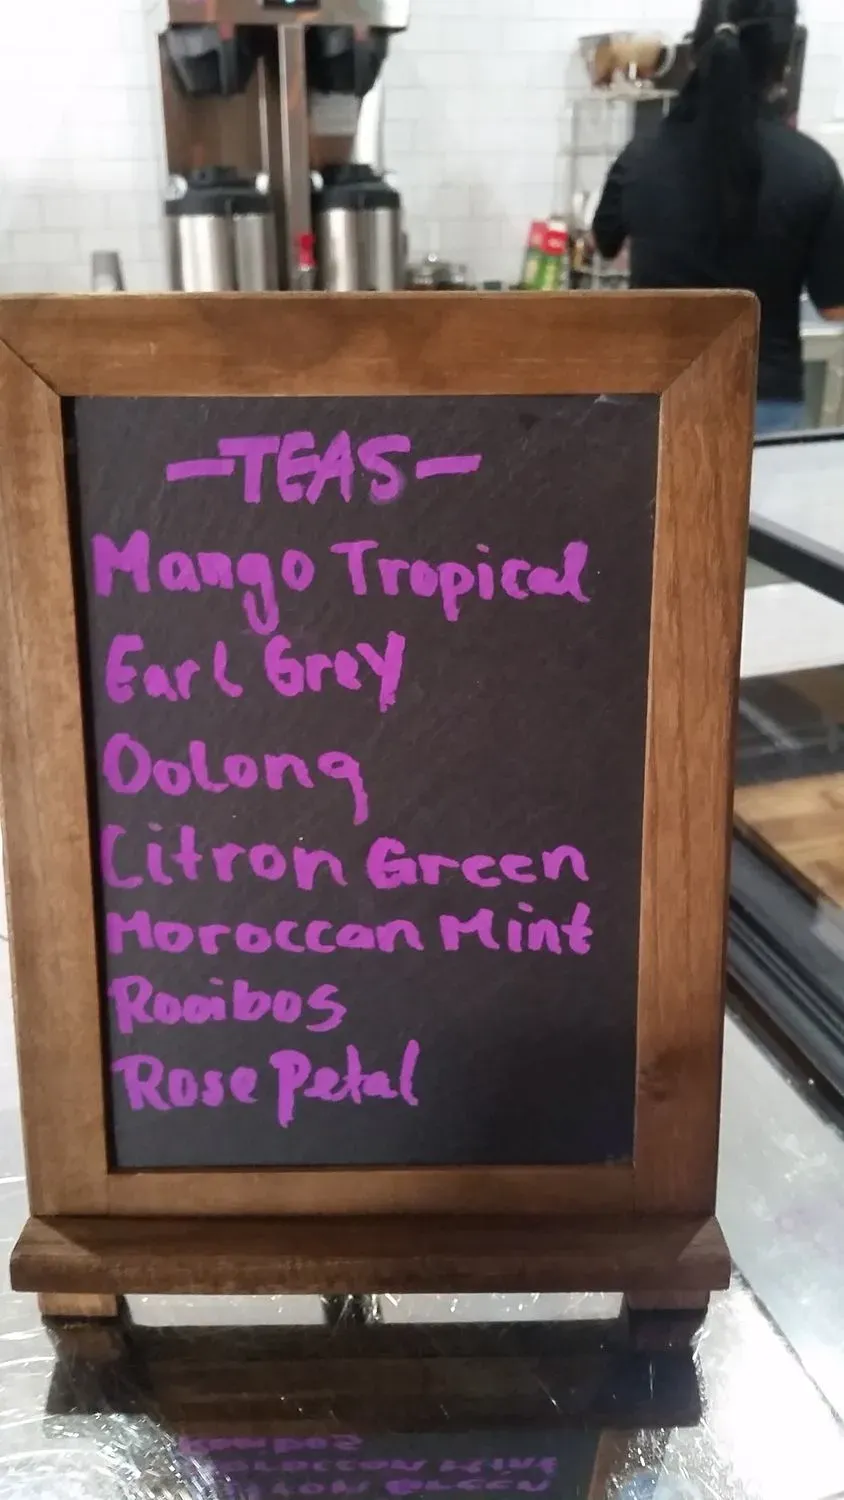 -TEAS-
Mango Tropical
Earl Grey
Oolong
Citron Green
Moroccan Mint
Rooibos
Rose Petal